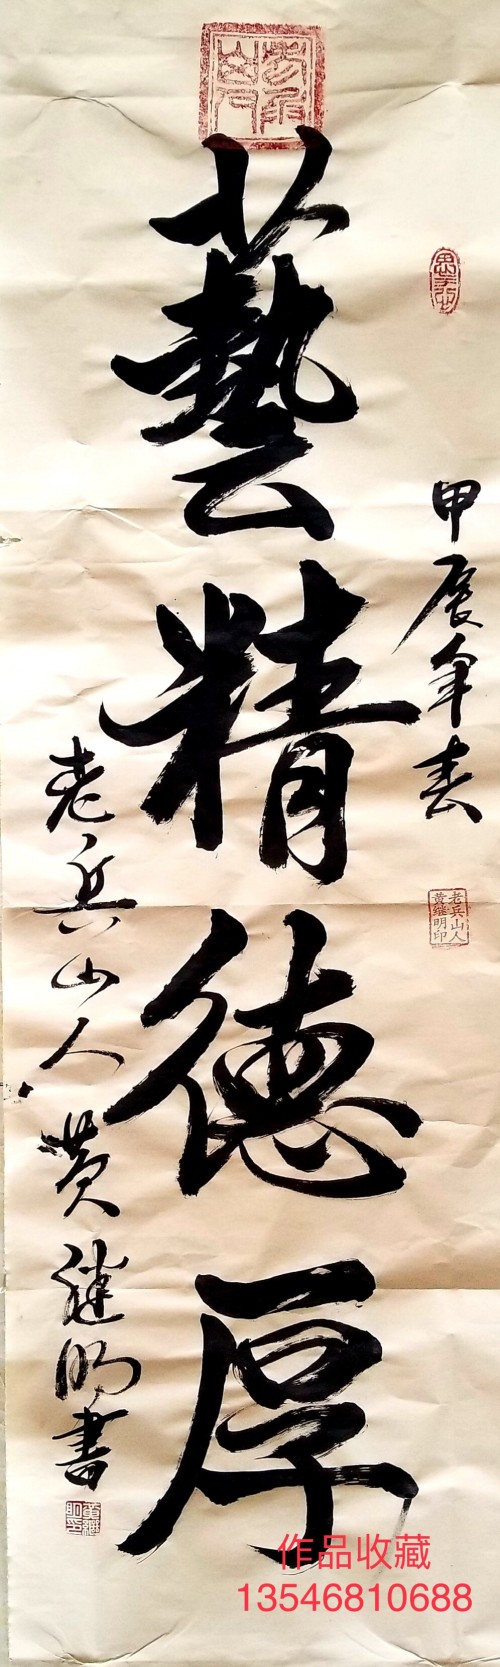 藝精德厚
甲辰年春
老兵山人
黄继明印
老兵山人黄継明書
作品收藏
13546810688